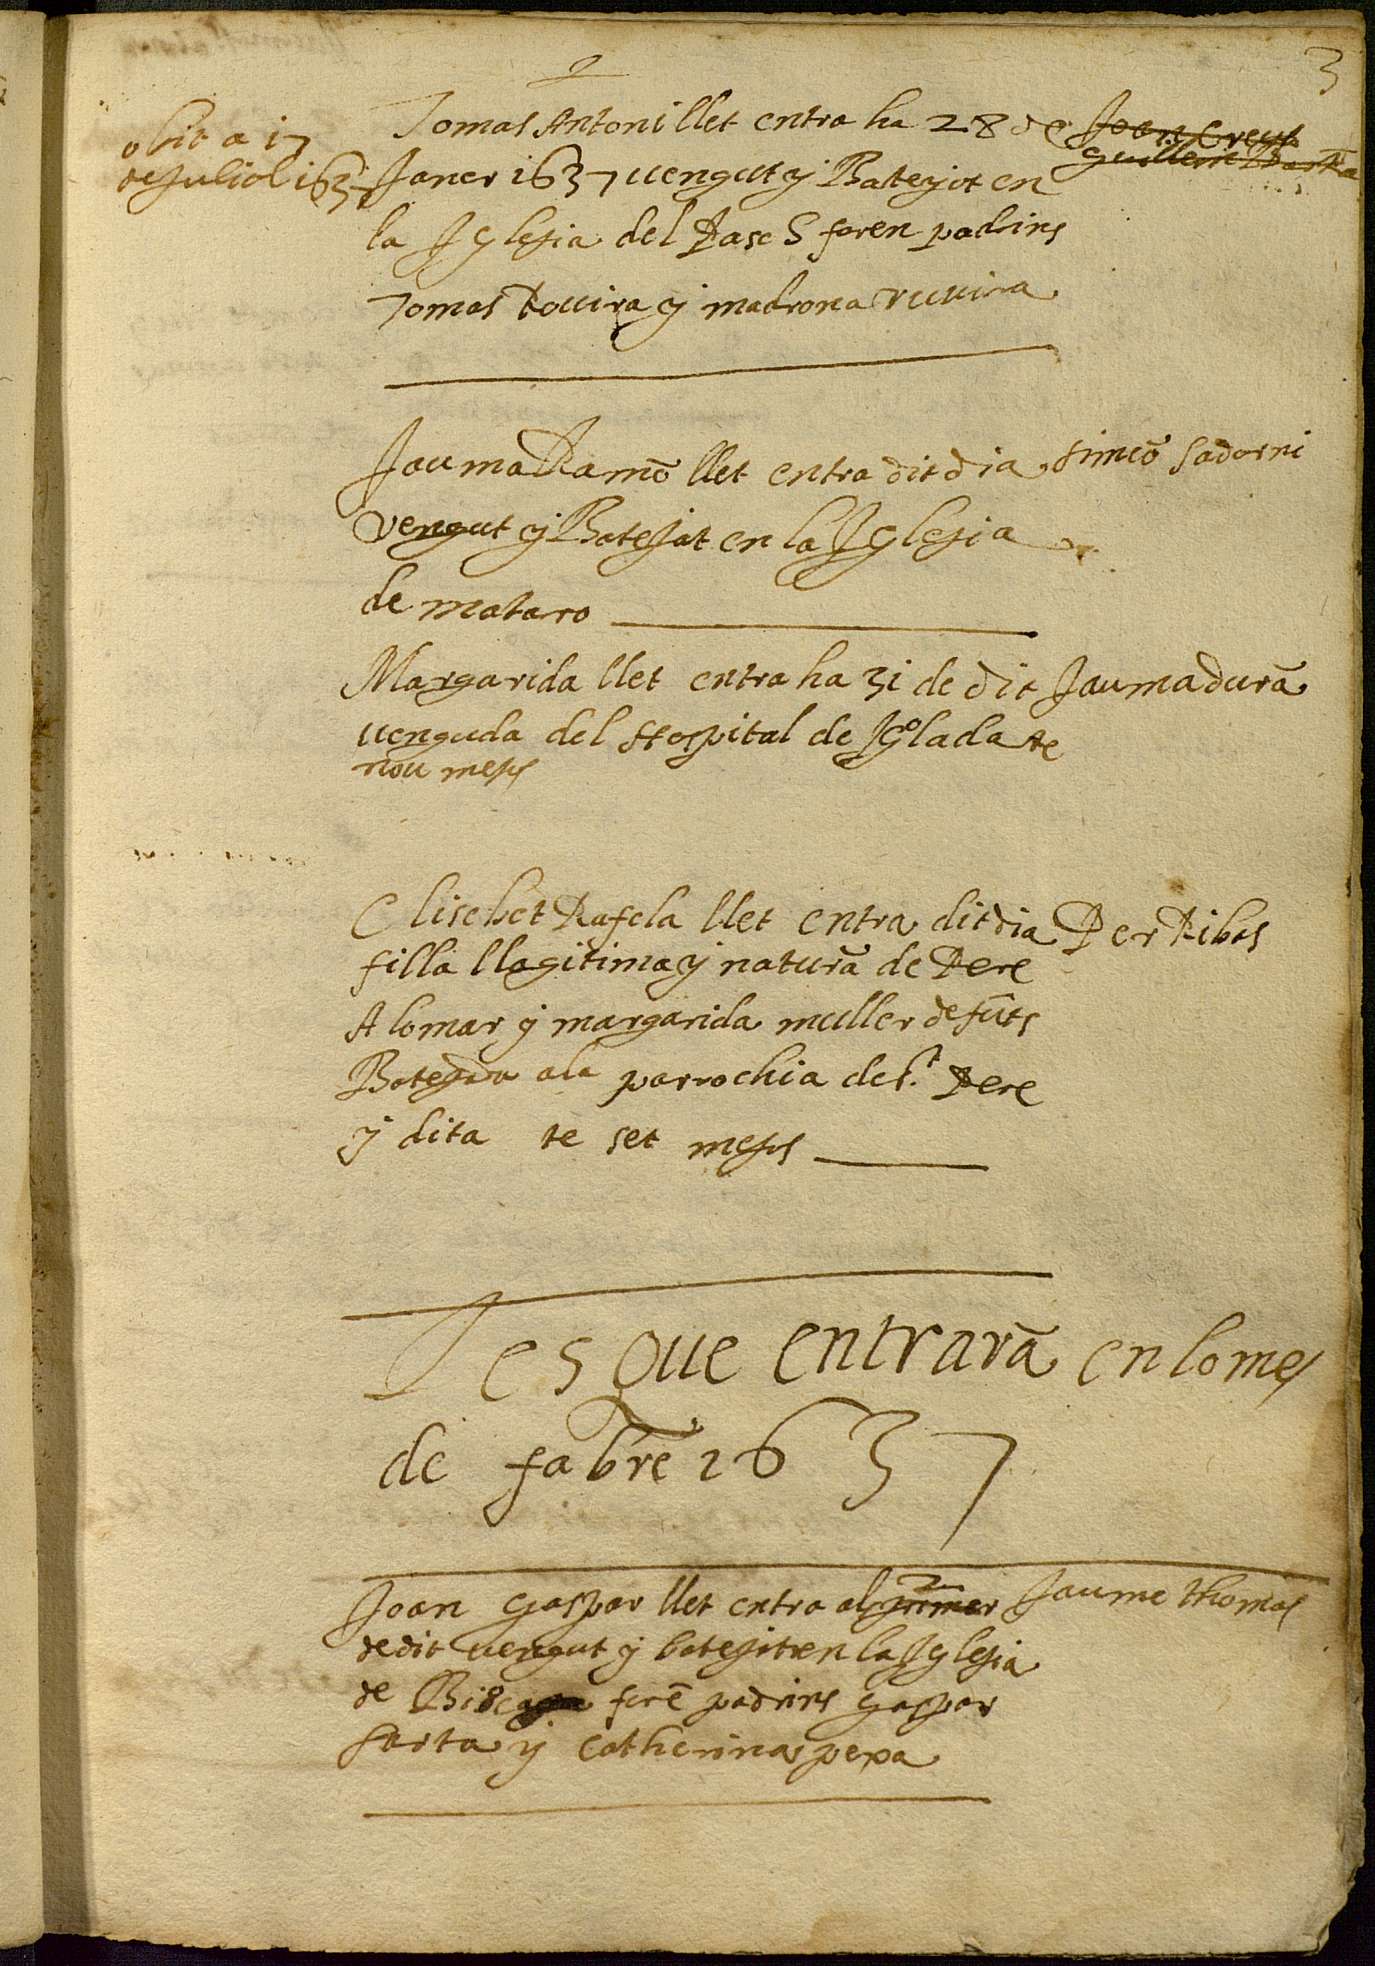 3
obit a 17
de Juliol 1637
Tomas Antoni llet entra ha 28 de
Joan Creus
Guillem
Janer 1637 uengut y Batejat en
la Iglesia del Pasc S foren padrins
Tomas Rouira y madrona ruuira
Jauma Ramō llet entra dit dia simeō sadorni
Vengut y Batejat en la Iglesia
de mataro
Margarida llet entra ha 31 de dit Jauma durā
uenguda del Hospital de Igolada te
nou mesos
Elisebet Rafela llet entra dit dia Per Ribes
filla llagitima y naturā de Pere
Alomar y margarida muller defūts
Bategada ala parrochia de s.t Pere
y dita te set mesos
Les que entrarā en lo mes
de fabrē 1637
Joan Gaspar llet entra al primer 2 Jaume thomas
de dit uengut y batejat en la Iglesia
de forē padrins gaspar
sarta y catherina pexa